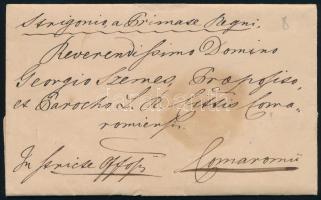 Strigonio, a Primate Regni.
8
Reverendissimo Domino
Georgio Szemes, Præposito,
et Parocho L. R. Cittis Coma-
romiensis.
In stricte Offosis
Comaromii